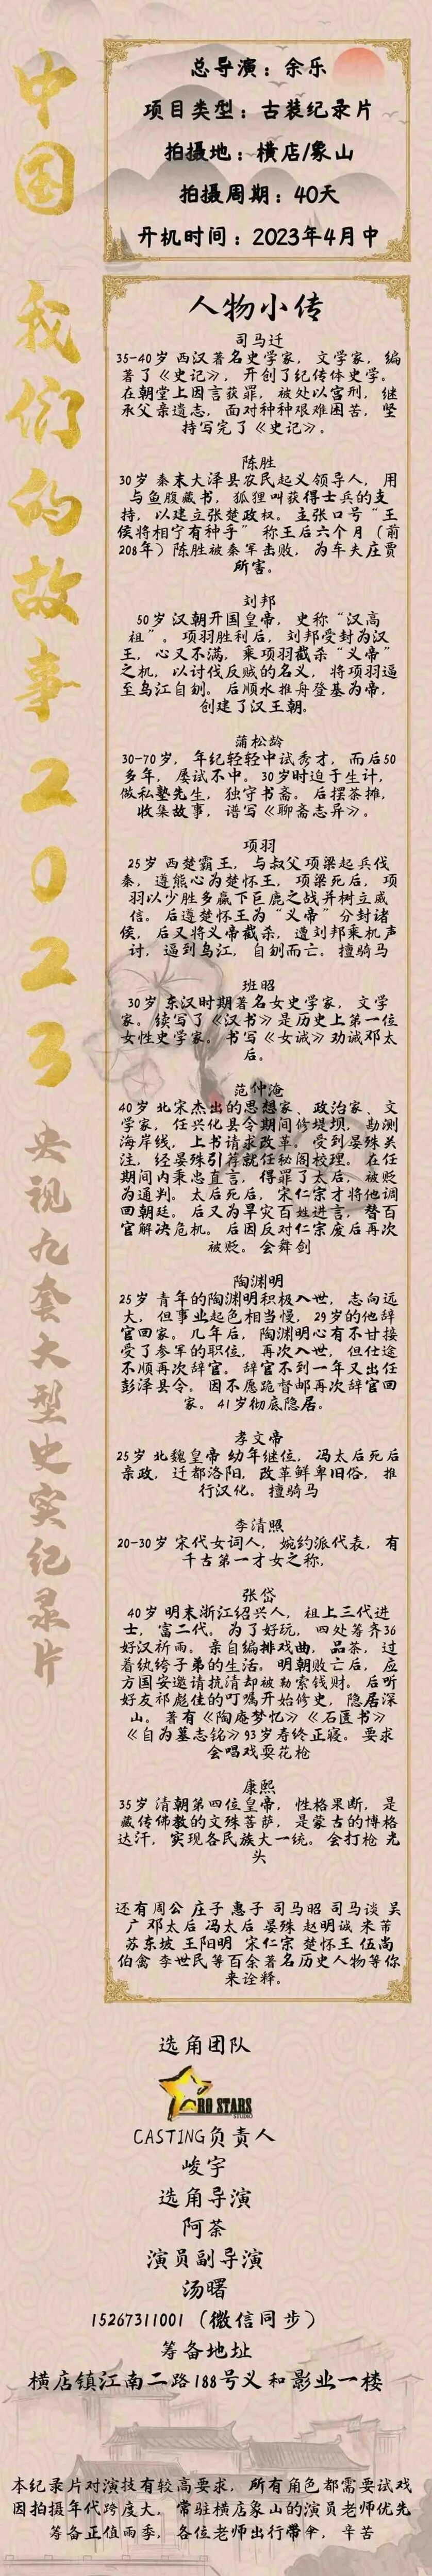 中国
我们的故事2023
央视九套大型史实纪录片
总导演：余乐
项目类型：古装纪录片
拍摄地：横店/象山
拍摄周期：40天
开机时间：2023年4月中
人物小传
司马迁
35-40岁 西汉著名史学家，文学家，编
著了《史记》，开创了纪传体史学。
在朝堂上因言获罪，被处以宫刑，继
承父亲遗志，面对种种艰难困苦，坚
持写完了《史记》。
陈胜
30岁 秦末大泽县农民起义领导人，用
与鱼腹藏书，狐狸叫获得士兵的支
持，以建立张楚政权。主张口号“王
侯将相宁有种乎”称王后六个月（前
208年）陈胜被秦军击败，为车夫庄贾
所害。
刘邦
50岁 汉朝开国皇帝，史称“汉高
祖”。项羽胜利后，刘邦受封为汉
王，心又不满，乘项羽截杀“义帝”
之机，以讨伐反贼的名义，将项羽逼
至乌江自刎。后顺水推舟登基为帝，
创建了汉王朝。
蒲松龄
30-70岁，年纪轻轻中试秀才，而后50
多年，屡试不中。30岁时迫于生计，
做私塾先生，独守书斋。后摆茶摊，
收集故事，谱写《聊斋志异》。
项羽
25岁 西楚霸王，与叔父项梁起兵伐
秦，遵熊心为楚怀王，项梁死后，项
羽以少胜多赢下巨鹿之战并树立威
信。后遵楚怀王为“义帝”分封诸
侯，后又将义帝截杀，遭刘邦乘机声
讨，逼到乌江，自刎而亡。擅骑马
班昭
30岁 东汉时期著名女史学家，文学
家。续写了《汉书》是历史上第一位
女性史学家。书写《女诫》劝诫邓太
后。
范仲淹
40岁 北宋杰出的思想家、政治家、文
学家，任兴化县令期间修堤坝，勘测
海岸线，上书请求改革，受到晏殊关
注，经晏殊引荐就任秘阁校理。在任
期间内秉忠直言，得罪了太后，被贬
为通判。太后死后，宋仁宗才将他调
回朝廷。后又为旱灾百姓进言，替百
官解决危机。后因反对仁宗废后再次
被贬。会舞剑
陶渊明
25岁 青年的陶渊明积极入世，志向远
大，但事业起色相当慢，29岁的他辞
官回家。几年后，陶渊明心有不甘接
受了参军的职位，再次入世，但仕途
不顺再次辞官。辞官不到一年又出任
彭泽县令。因不愿跪督邮再次辞官回
家。41岁彻底隐居。
孝文帝
25岁 北魏皇帝 幼年继位，冯太后死后
亲政，迁都洛阳，改革鲜卑旧俗，推
行汉化。擅骑马
李清照
20-30岁 宋代女词人，婉约派代表，有
千古第一才女之称，
张岱
40岁 明末浙江绍兴人，祖上三代进
士，富二代。为了好玩，四处筹齐36
好汉祈雨。亲自编排戏曲，品茶，过
着纨绔子弟的生活。明朝败亡后，应
方国安邀请抗清却被勒索钱财。后听
好友祁彪佳的叮嘱开始修史，隐居深
山。著有《陶庵梦忆》《石匮书》
《自为墓志铭》93岁寿终正寝。要求
会唱戏耍花枪
康熙
35岁 清朝第四位皇帝，性格果断，是
藏传佛教的文殊菩萨，是蒙古的博格
达汗，实现各民族大一统。会打枪 光
头
还有周公 庄子 惠子 司马昭 司马谈 吴
广 邓太后 冯太后 晏殊 赵明诚 米芾
苏东坡 王阳明 宋仁宗 楚怀王 伍尚
伯禽 李世民等百余著名历史人物等你
来诠释。
选角团队
RO STARS
STUDIO
CASTING负责人
峻宇
选角导演
阿荼
演员副导演
汤曙
15267311001（微信同步）
筹备地址
横店镇江南二路188号义和影业一楼
本纪录片对演技有较高要求，所有角色都需要试戏
因拍摄年代跨度大，常驻横店象山的演员老师优先
筹备正值雨季，各位老师出行带伞，辛苦